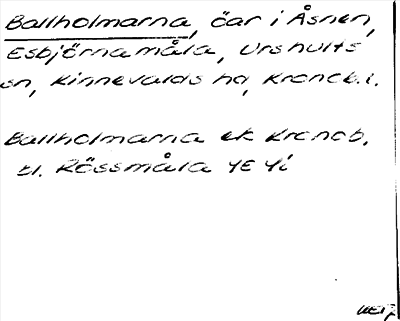 Ballholmarna, öar i Åsnen,
Esbjörnamåla, Urshults
sn, Kinnevalds hd, Kronob.l.
Ballholmarna ek Kronob.
bl. Rössmåla 4E 4i